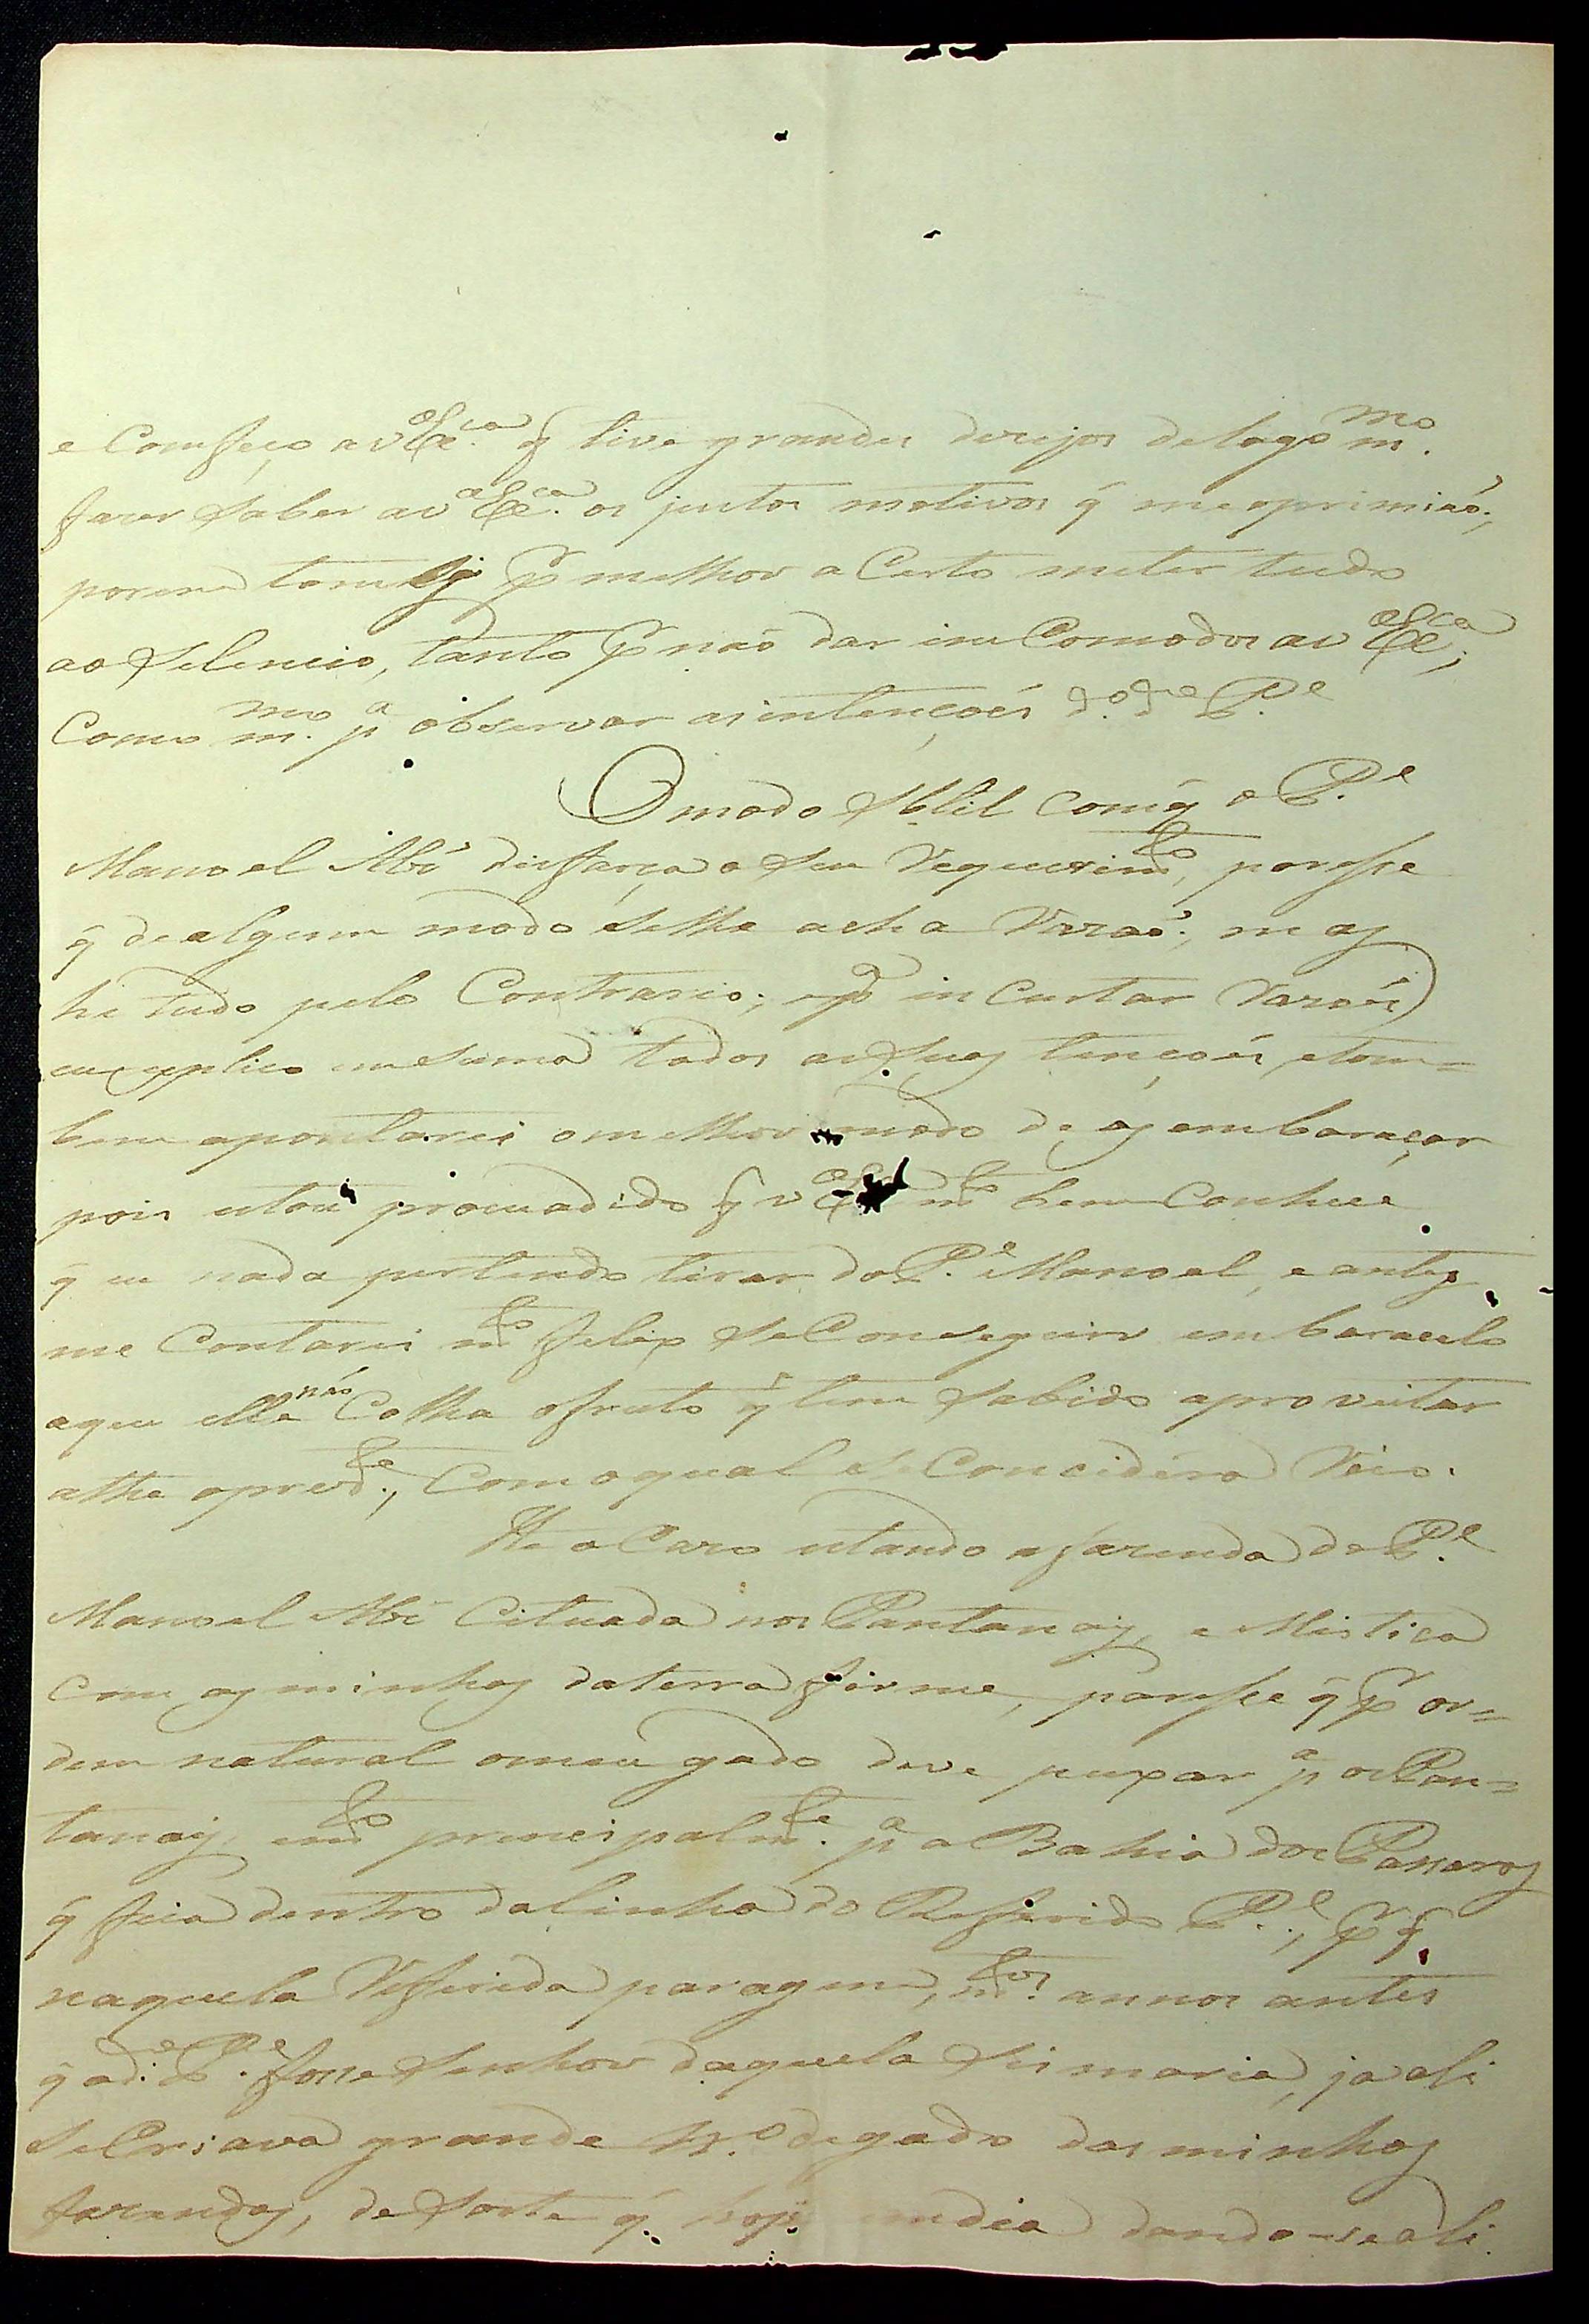 e Comfeço a vEx.ca q̃ tive grandes dezejos de logo m.mo
fazer saber a vEx.ca os justos motivos q̃ me oprimiaõ;
porem p.r melhor a Certo meter tudo
ao Selencio, tanto p.r naõ dar in Comodos a v Ex.ca;
Como m.mo p.a observar as intençoés d.o P.e
O modo Sutil com q̃ o P.e
Manoel Alz̃ disfarça o seu Requerim.to, paresse
q̃ de algum modo se lhe acha Razaõ; mas
he tudo pelo Contrario; e p.a in Curtar Razoés
eu explico em suma todas as suas tençoés, e tom=
bem apontarei o melhor modo de as embaraçar
pois estou procuadido q̃ v Ex.ca m.to bem Conhece
q̃ eu nada pertendo tirar do P.e Manoel, e antes
me Contarei m.to felix se Conseguir embaracelo
a que elle naõ Colha o fruto q̃ tem sabido aproveitar
athe o prez.te, Com o qual se Concidéra Rico.
He o Cazo estando a fazenda do P.e
Manoel Alz̃ Cituada nos Pantanais, e Mistica
com as minhas da terra firme, paresse q̃ p.r or=
dem natural o meu gado deve puxar p.a os Pan=
tanais, e m.to principalm.te p.a a Bahia dos Passaros
q̃ fica dentro da linha do Refferido P.e, p.r q̃
naquela Refferida paragem, m.tos annos antes
q̃ o d.e P.e fosse senhor daquela Sismaria, ja ali
se Criava grande N.o de gado das minhas
fazendas, de sorte q̃ hoje em dia dando-se ali